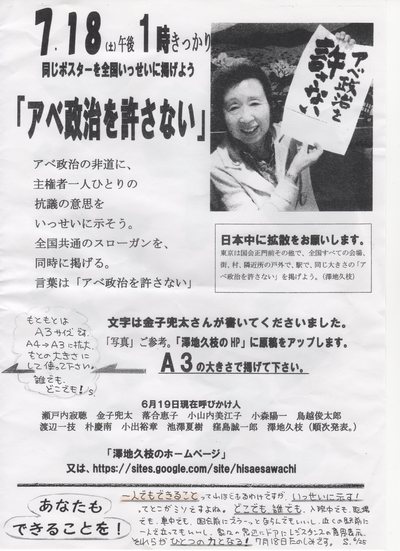 7.18(土)午後1時きっかり
同じポスターを全国いっせいに掲げよう
「アベ政治を許さない」
アベ政治を
許さない
アベ政治の非道に、
主権者一人ひとりの
抗議の意思を
いっせいに示そう。
全国共通のスローガンを、
同時に掲げる。
言葉は「アベ政治を許さない」
日本中に拡散をお願いします。
東京は国会正門前その他で、全国すべての会場、
街、村、隣近所の戸外で、駅で、同じ大きさの「ア
ベ政治を許さない」を掲げよう。(澤地久枝)
もともとは
A3サイズ
A4→A3に拡大、
もとの大きさに
して使って下さい。
誰でも、
どこでも!
文字は金子兜太さんが書いてくださいました。
「写真」ご参考。「澤地久枝のHP」に原稿をアップします。
A3の大きさで掲げて下さい。
6月19日現在呼びかけ人
瀬戸内寂聴 金子兜太 落合恵子 小山内美江子 小森陽一 鳥越俊太郎
渡辺一枝 朴慶南 小出裕章 池澤夏樹 窪島誠一郎 澤地久枝(順次発表。)
「澤地久枝のホームページ」
又は、https://sites.google.com/site/hisaesawachi
あなたも
できることを!
一人でもできることって山ほどあるわけですが、いっせいに示す!
ってとこがミソですよね。どこでも、誰でも、
でも、車中でも、国会前にズラーッとならんでもいいし、
一人で立ってもいいし、
それらがひとつの力となる!7月18日たのしみです。S. 6/25